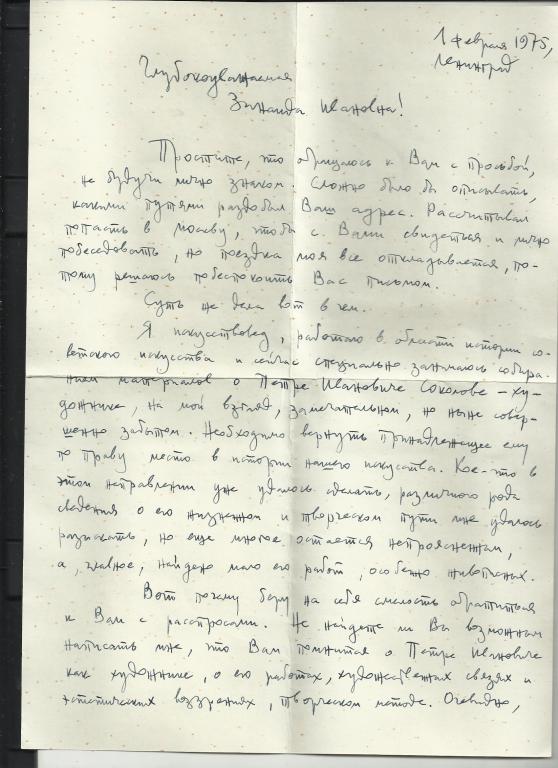 1 февраля 1975,
Ленинград
Глубокоуважаемая
Зинаида Ивановна!
Простите, что обращаюсь к Вам с просьбой,
не будучи лично знаком. Сложно было бы описывать,
какими путями раздобыл Ваш адрес. Рассчитывал
попасть в Москву, чтобы с Вами свидеться и лично
побеседовать, но поездка моя все откладывается, по-
тому решаюсь побеспокоить Вас письмом.
Суть же дела вот в чем.
Я искусствовед, работаю в области истории со-
ветского искусства и сейчас специально занимаюсь собира-
нием материалов о Петре Ивановиче Соколове – ху-
дожнике, на мой взгляд, замечательном, но ныне совер-
шенно забытом. Необходимо вернуть принадлежащее ему
по праву место в истории нашего искусства. Кое-что в
этом направлении уже удалось сделать, различного рода
сведения о его жизненном и творческом пути мне удалось
разыскать, но еще многое остается непроясненным,
а, главное, найдено мало его работ, особенно живописных.
Вот почему беру на себя смелость обратиться
к Вам с расспросами. Не найдете ли Вы возможным
написать мне, что Вам помнится о Петре Ивановиче
как художнике, о его работах, художественных связях и
эстетических воззрениях, творческом методе. Очевидно,